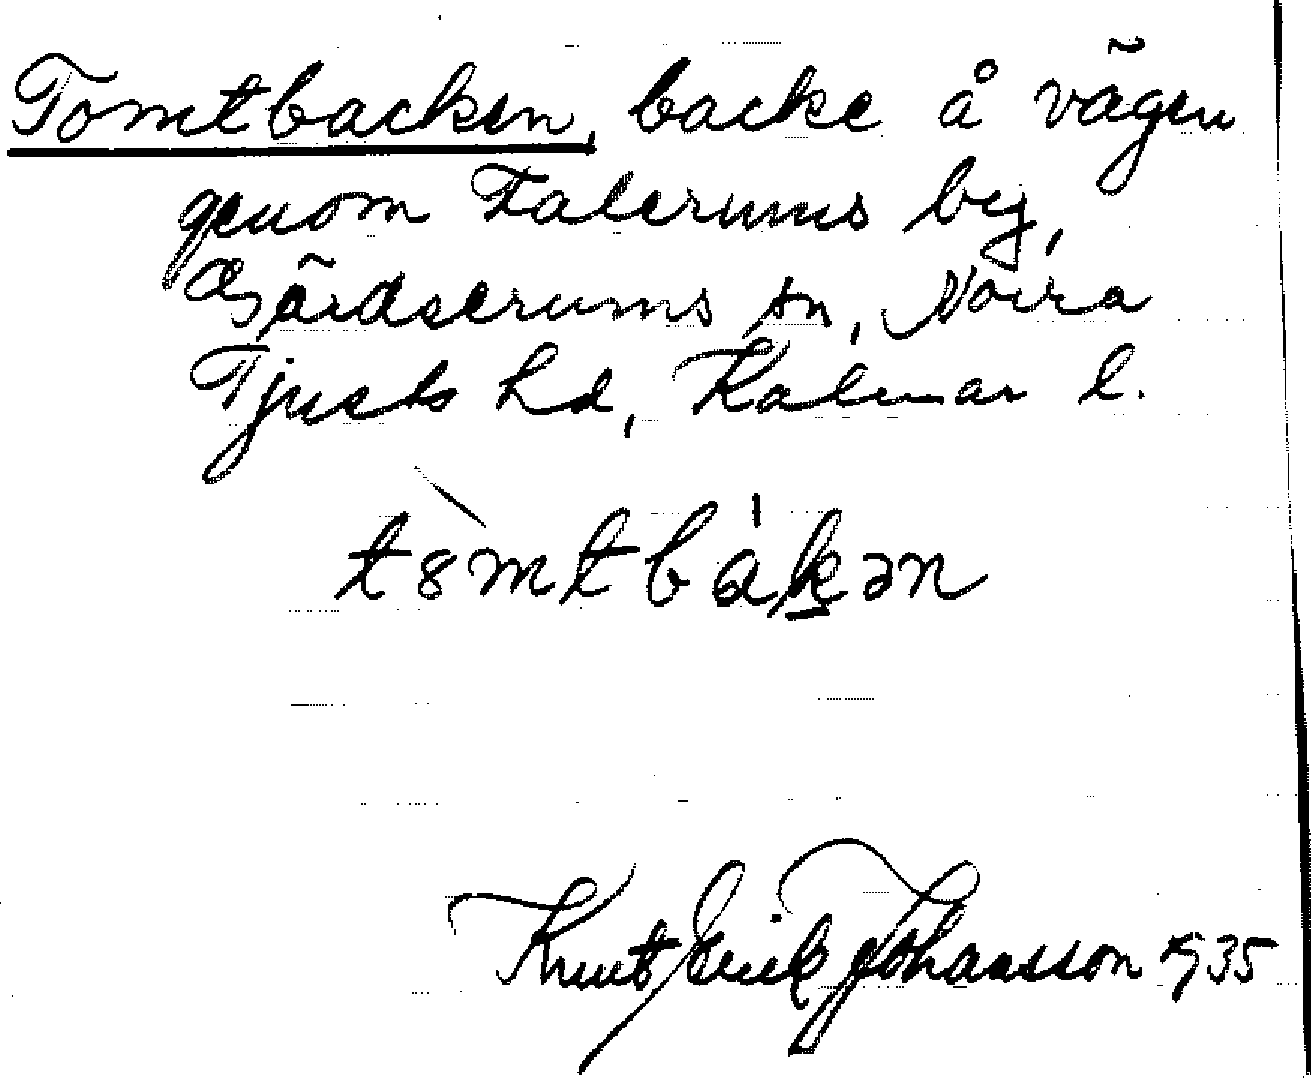 Tomtbacken, backe å vägen
genom Falerums by,
Gärdserums sn, Norra
Tjusts hd, Kalmar l.
t8mtbakən
Knut Erik Johansson 1935